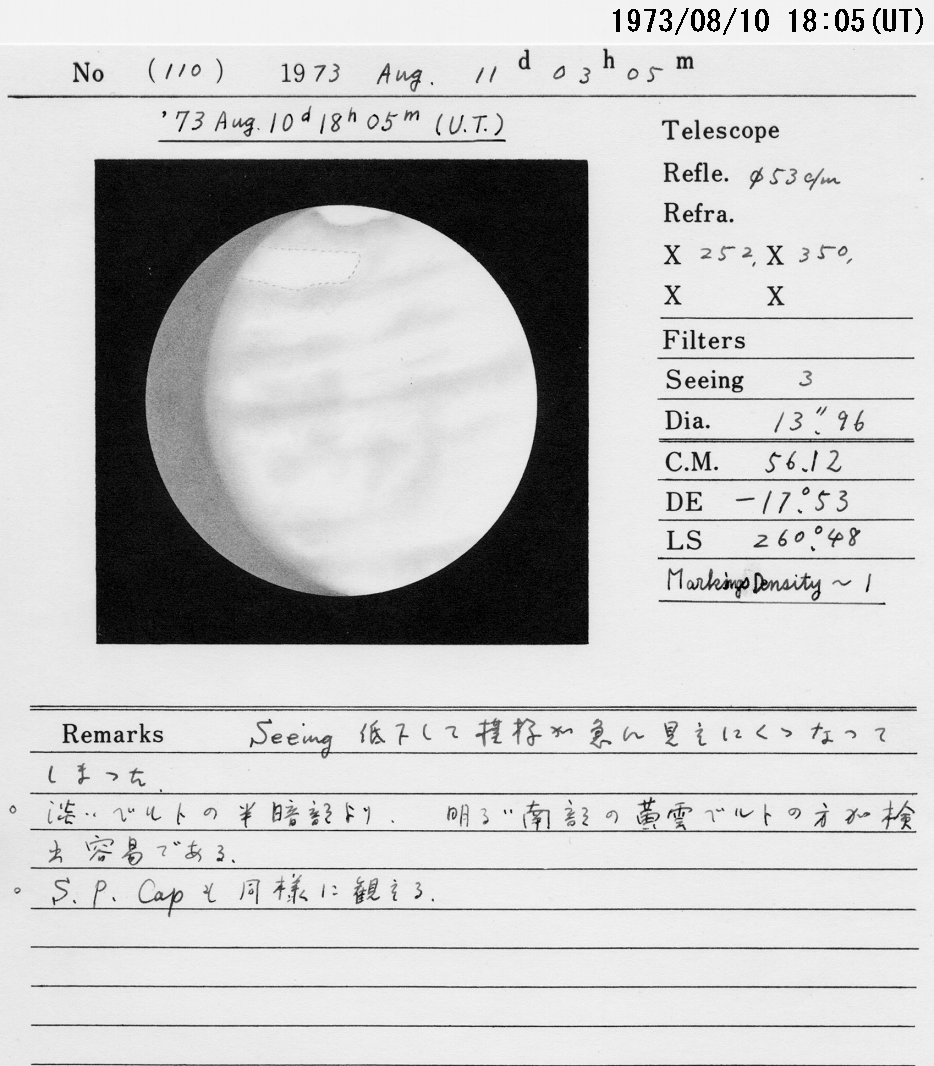 1973/08/10 18:05(UT)
No (110) 1973 Aug. 11 d 03 h 05 m
'73 Aug. 10d 18h 05m (U.T.)
Telescope
Refle. φ53c/m
Refra.
X 252, X 350,
X X
Filters
Seeing 3
Dia. 13".96
C.M. 56.12
DE -17°.53
LS 260°.48
Markings Density ~ 1
Remarks Seeing 低下して模様が急に見えにくくなって
しまった.
○ 淡いベルトの半暗部より. 明るい南部の黄雲ベルトの方が検
出容易である.
○ S. P. Cap も同様に観える.